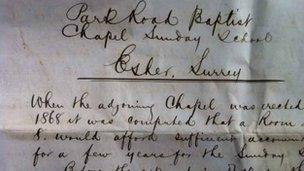 Park Road Baptist
Chapel Sunday School
Esher, Surrey
When the adjoining Chapel was erected
1868 it was computed that a Room
8. would afford sufficient accom
for a few years for the Sunday S